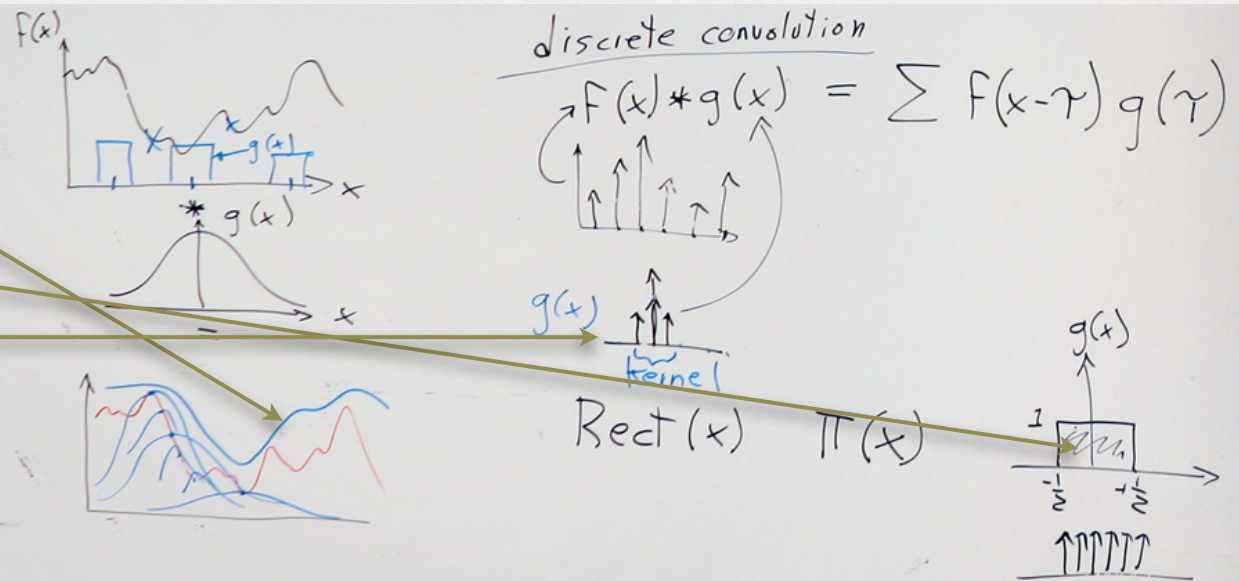 f(x)
g(x)
x
*
g(x)
x
=
discrete convolution
f(x) * g(x) = ∑ f(x-τ) g(τ)
g(x)
kernel
Rect(x) Π(x)
g(x)
1
-1/2 +1/2